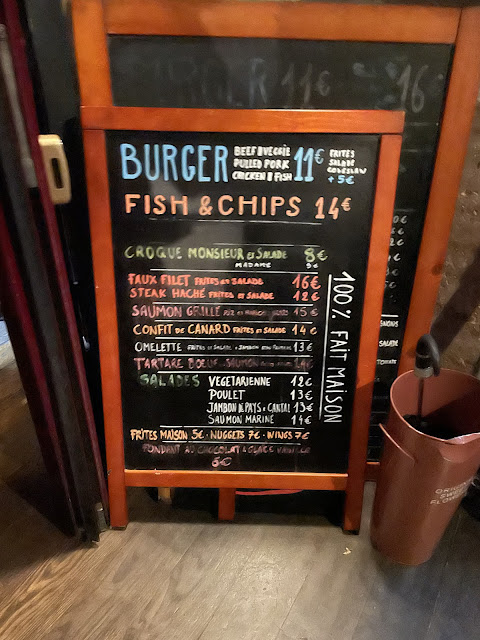 BURGER BEEF VEGGIE PULLED PORK CHICKEN FISH 11€ FRITES SALADE COLESLAW +5€
FISH & CHIPS 14€
CROQUE MONSIEUR et SALADE 8€
MADAME 9€
FAUX FILET FRITES et SALADE 16€
STEAK HACHÉ FRITES et SALADE 12€
SAUMON GRILLÉ RIZ et 15€
CONFIT DE CANARD FRITES et SALADE 14€
OMELETTE FRITES et SALADE 13€
TARTARE BOEUF SAUMON 14€
SALADES VEGETARIENNE 12€
POULET 13€
JAMBON D PAYS CANTAL 13€
SAUMON MARINÉ 14€
FRITES MAISON 5€ · NUGGETS 7€ · WINGS 7€
FONDANT AU CHOCOLAT & GLACE VANILLE
6€
100% FAIT MAISON
BURGER 11€ 16
SALADE